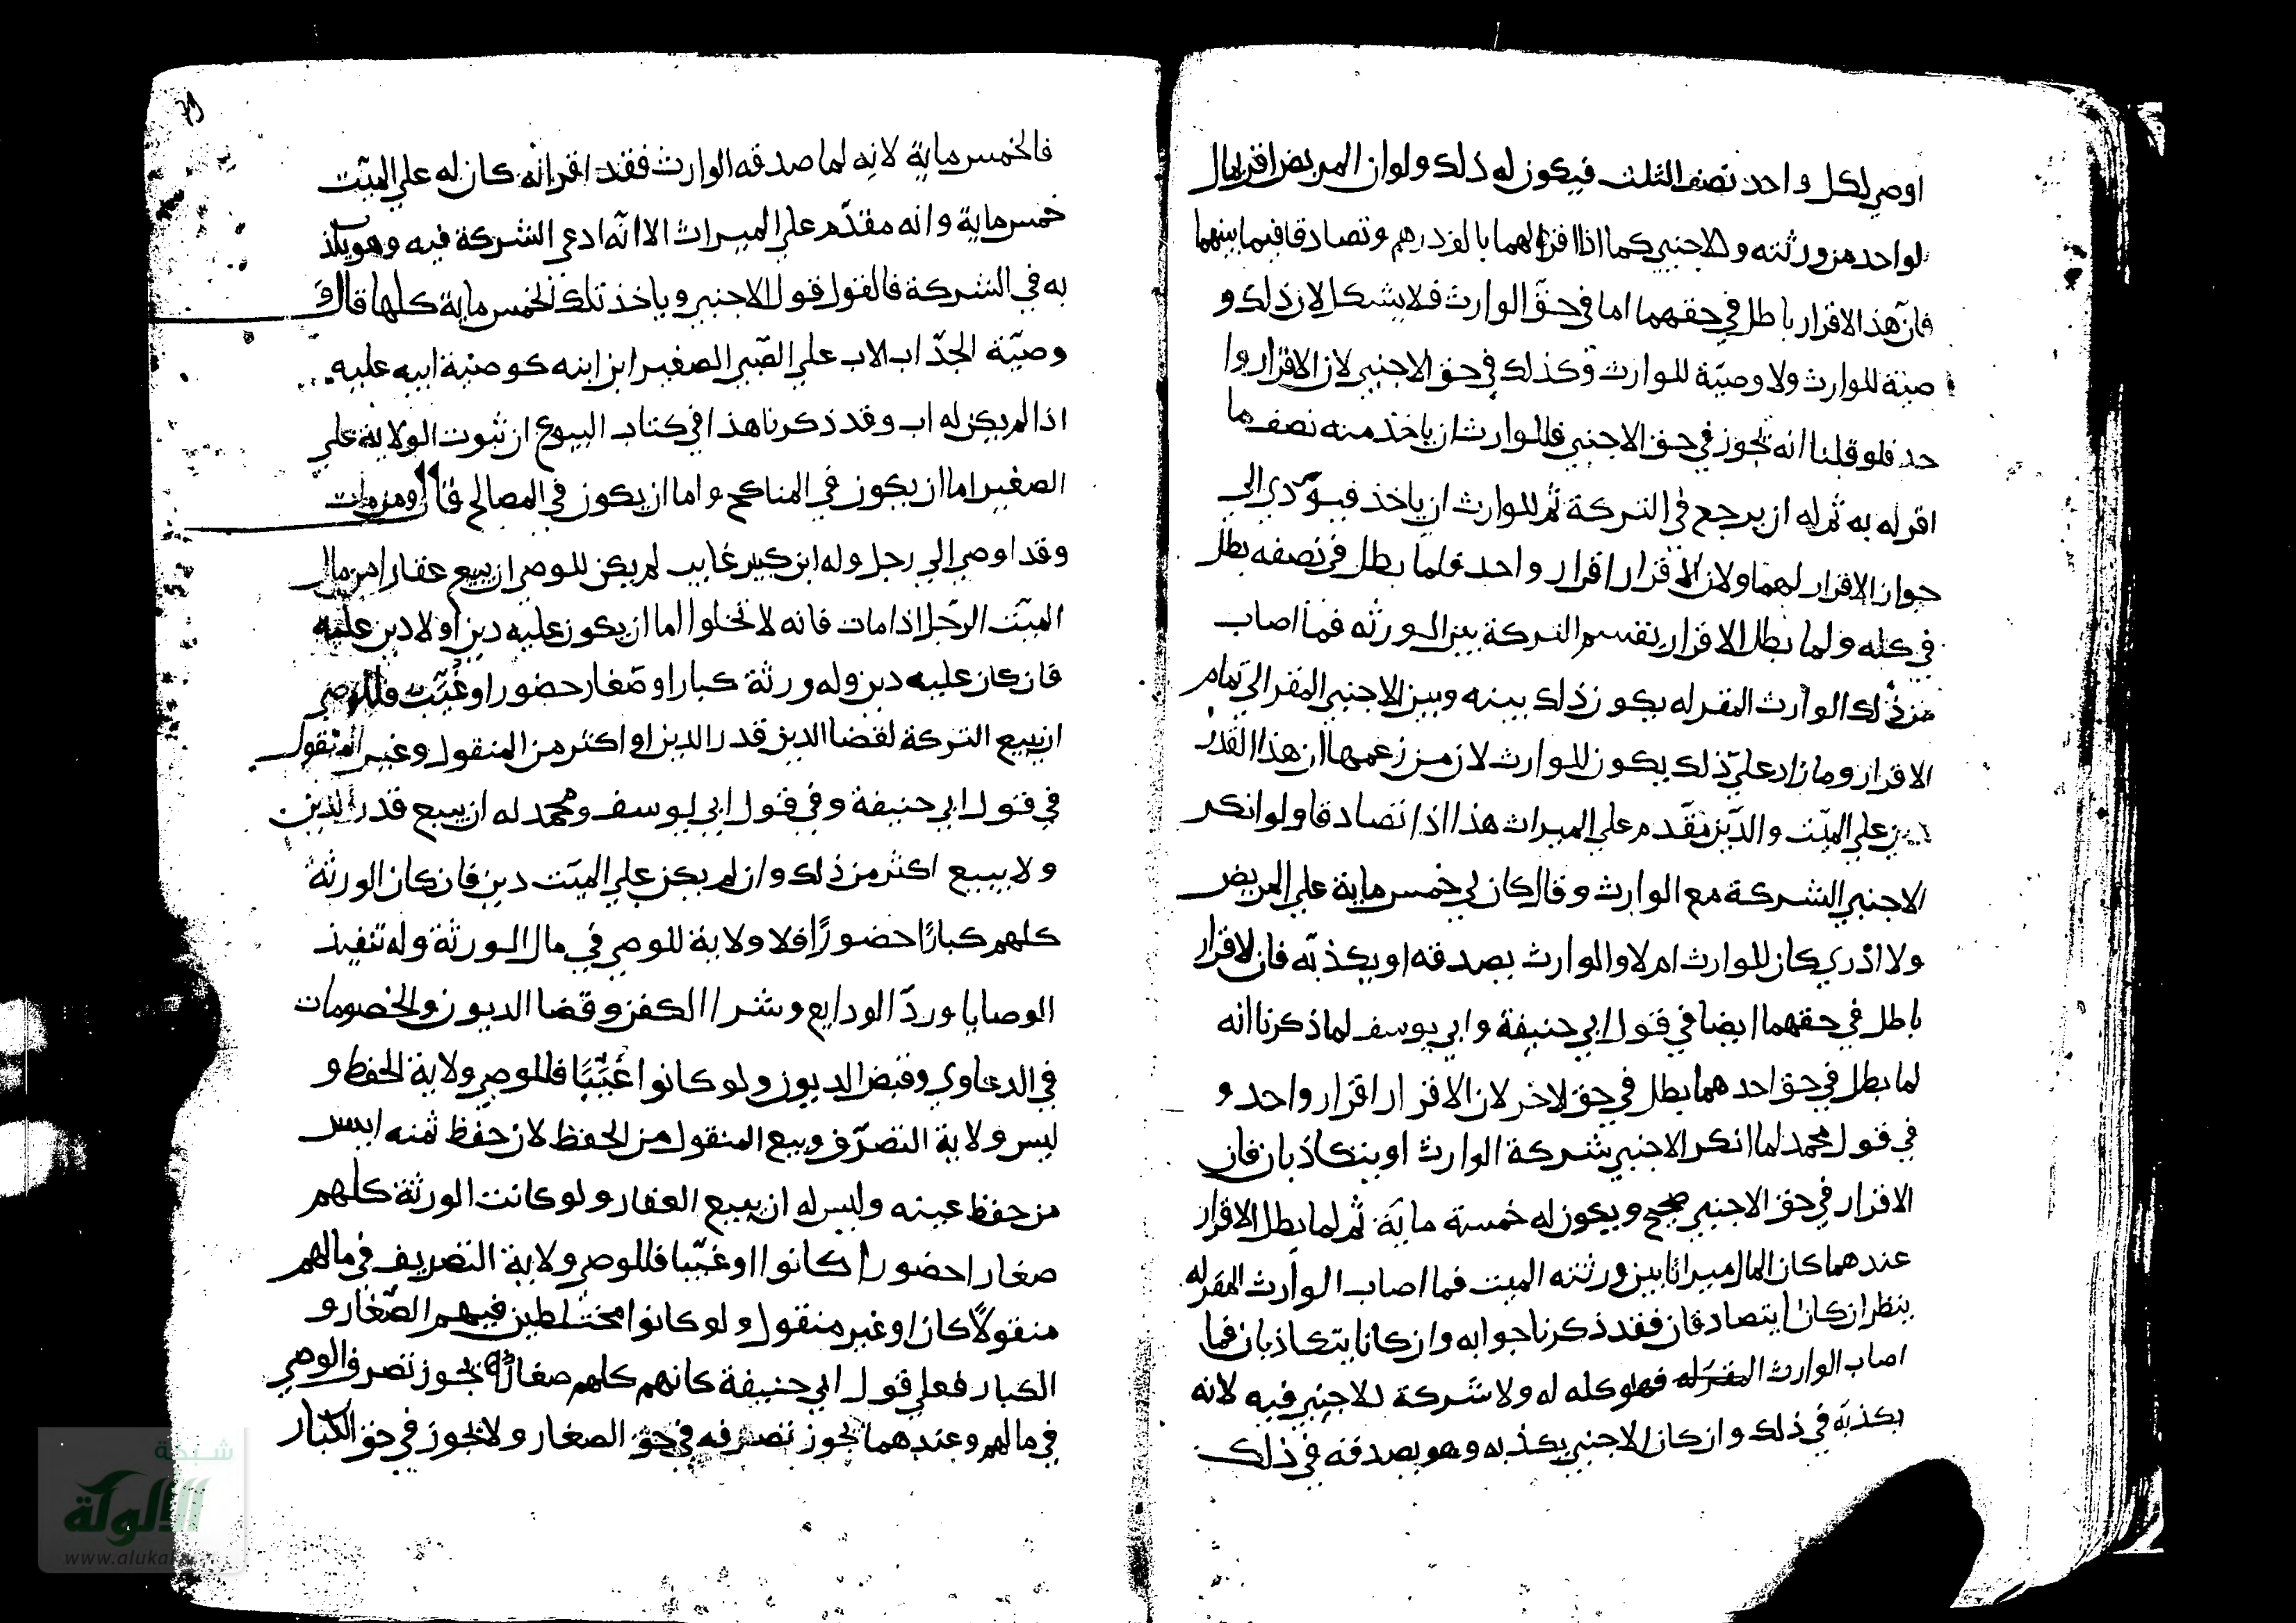 اوصي لكل واحد نصف الثلث فيكون له ذلك ولو ان المريض اقر بمال
لواحد من ورثته والاجنبي كما اذا اقر لهما بالف درهم وتصادقا فيما بينهما
فان هذا الاقرار باطل في حقهما اما في حق الوارث فلا يشكل لان ذلك و
صية للوارث ولا وصية للوارث وكذلك في حق الاجنبي لان الاقرار وا
حد فلو قلنا انه يجوز في حق الاجنبي فللوارث ان ياخذ منه نصف ما
اقر له به ثم له ان يرجع في التركة ثم للوارث ان ياخذ فيؤدي الي
جواز الاقرار لهما ولان الاقرار اقرار واحد فلما بطل في نصفه بطل
في كله ولما بطل الاقرار يقسم التركة بين الورثه فما اصاب
من ذلك الوارث المقر له يكون ذلك بينه وبين الاجنبي المقر الي تمام
الاقرار وما زاد علي ذلك يكون للوارث لان من زعمها ان هذا القدر
دين علي الميت والدين مقدم علي الميراث هذا اذا تصادقا ولو انكر
الاجنبي الشركة مع الوارث وقال كان لي خمس ماية علي المريض
ولا ادري كان للوارث ام لا والوارث يصدقه او يكذبه فان لاقرار
باطل في حقهما ايضا في قول ابي حنيفة وابي يوسف لما ذكرنا انه
لما بطل في حق احدهما بطل في حق لاخر لان الاقرار اقرار واحد و
في قول محمد لما انكر الاجنبي شركة الوارث او يتكاذبان فان
الاقرار في حق الاجنبي صحيح ويكون له خمسة ماية ثم لما بطل الاقرار
عندهما كان المال ميراثا بين ورثته الميت فما اصاب الوارث المقر له
ينظر ان كانا يتصادقان فقد ذكرنا جوابه وان كانا يتكاذبان فما
اصاب الوارث المقر له فهو كله له ولا شركة للاجنبي فيه لانه
يكذبه في ذلك وان كان الاجنبي يكذبه وهو يصدقه في ذلك
فالخمس ماية لانه لما صدقه الوارث فقد اقر انه كان له علي الميت
خمس ماية وانه مقدم علي الميراث الا انه ادعي الشركة فيه وهو يكذ
به في الشركة فالقول قول الاجنبي وياخذ تلك الخمس ماية كلها قال و
وصية الجد اب الاب علي الصبي الصغير ابن ابنه كوصية ابيه عليه
اذا لم يكن له اب وقد ذكرنا هذا في كتاب البيوع ان ثبوت الولاية علي
الصغير اما ان يكون في المناكح واما ان يكون في المصالح قال ومن مات
وقد اوصي الي رجل وله ابن كبير غايب لم يكن للوصي ان يبيع عقارا من مال
الميت الرجل اذا مات فانه لا تخلوا اما ان يكون عليه دين او لا دين عليه
فان كان عليه دين وله ورثة كبار او صغار حضور او غيب فللوصي
ان يبيع التركة لقضا الدين قدر الدين او اكثر من المنقول وغير المنقول
في قول ابي حنيفة وفي قول ابي يوسف ومحمد له ان يبيع قدر الدين
ولا يبيع اكثر من ذلك وان لم يكن علي الميت دين فان كان الورثة
كلهم كبارا حضورا فلا ولاية للوصي في مال الورثة وله تنفيذ
الوصايا ورد الودايع وشرا الكفن وقضا الديون والخصومات
في الدعاوي وقبض الديون ولو كانوا غيبا فللوصي ولاية الحفظ و
ليس ولاية التصرف وبيع المنقول من الحفظ لان حفظ ثمنه ايسر
من حفظ عينه وليس له ان يبيع العقار ولو كانت الورثة كلهم
صغارا حضورا كانوا او غيبا فللوصي ولاية التصريف في مالهم
منقولا كان او غير منقول ولو كانوا مختلطين فيهم الصغار و
الكبار فعلي قول ابي حنيفة كانهم كلهم صغار يجوز تصرف الوصي
في مالهم وعندهما يجوز تصرفه في حق الصغار ولا يجوز في حق الكبار
شبكة
الألوكة